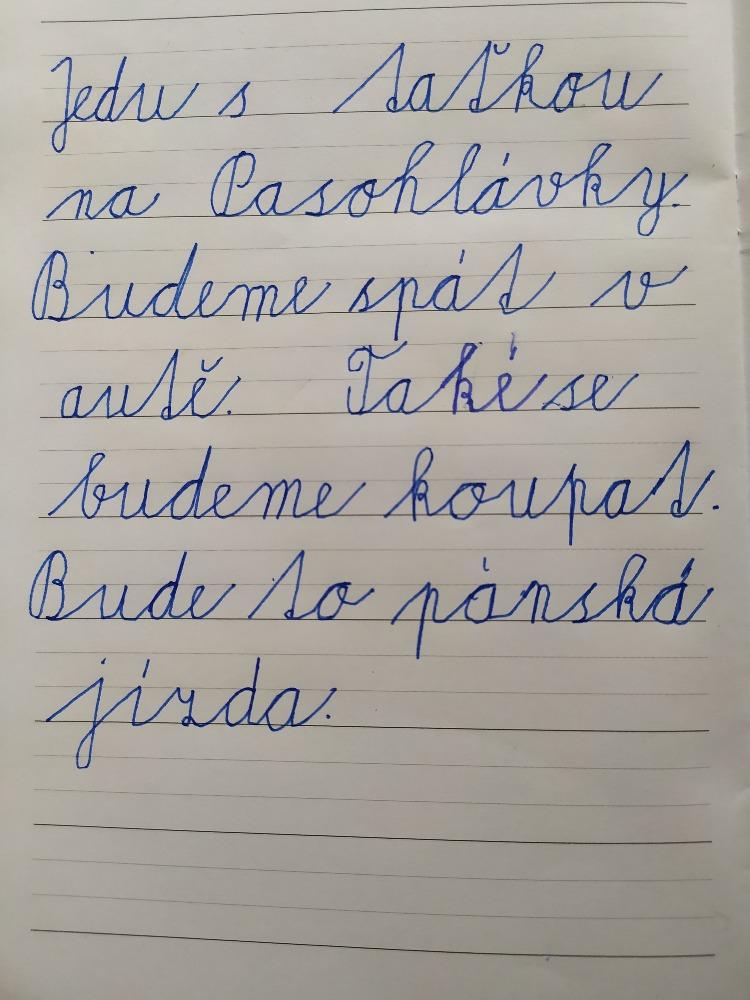 Jedu s taťkou
na Pasohlávky.
Budeme spát v
autě. Také se
budeme koupat.
Bude to pánská
jízda.